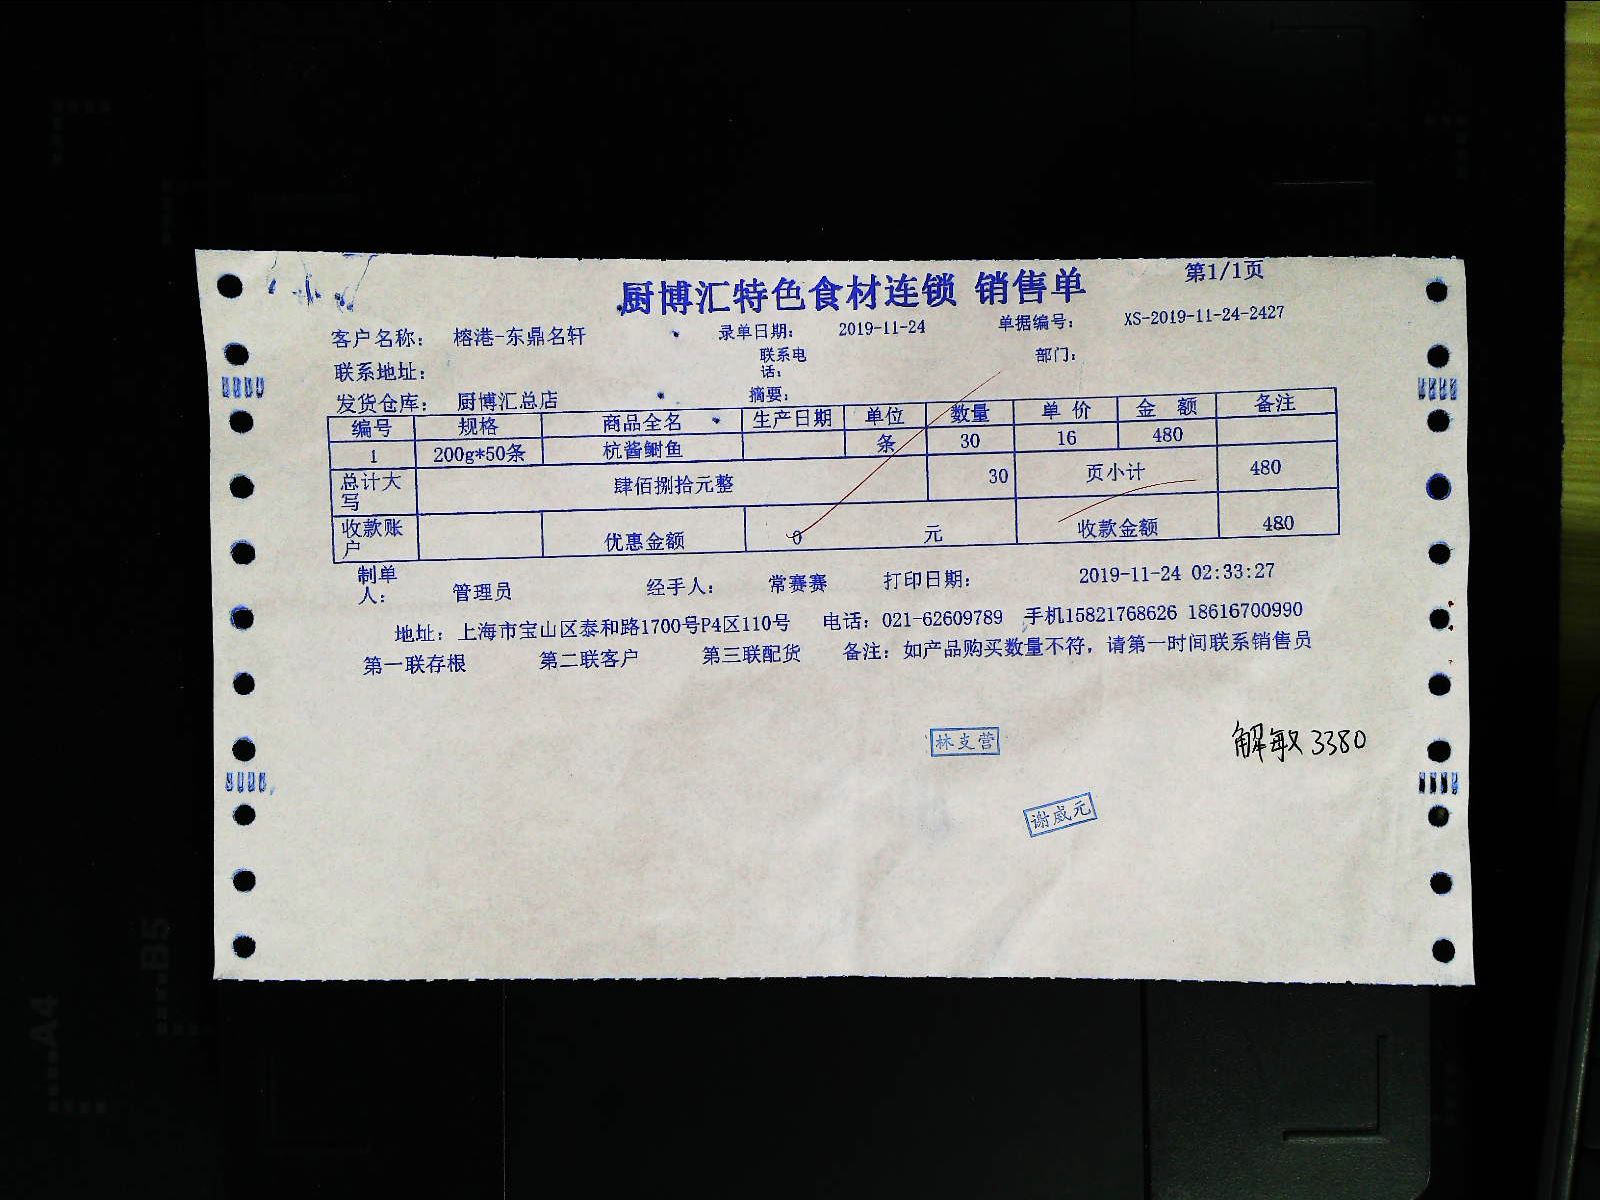 厨博汇特色食材连锁 销售单 第1/1页
客户名称： 榕港-东鼎名轩 录单日期： 2019-11-24 单据编号： XS-2019-11-24-2427
联系地址： 联系电话： 部门：
发货仓库： 厨博汇总店 摘要：
编号 规格 商品全名 生产日期 单位 数量 单 价 金 额 备注
1 200g*50条 杭酱鲥鱼 条 30 16 480
总计大写 肆佰捌拾元整 30 页小计 480
收款账户 优惠金额 0 元 收款金额 480
制单人： 管理员 经手人： 常赛赛 打印日期： 2019-11-24 02:33:27
地址：上海市宝山区泰和路1700号P4区110号 电话：021-62609789 手机15821768626 18616700990
第一联存根 第二联客户 第三联配货 备注：如产品购买数量不符，请第一时间联系销售员
林支营
解敏 3380
谢威元
B5
A4